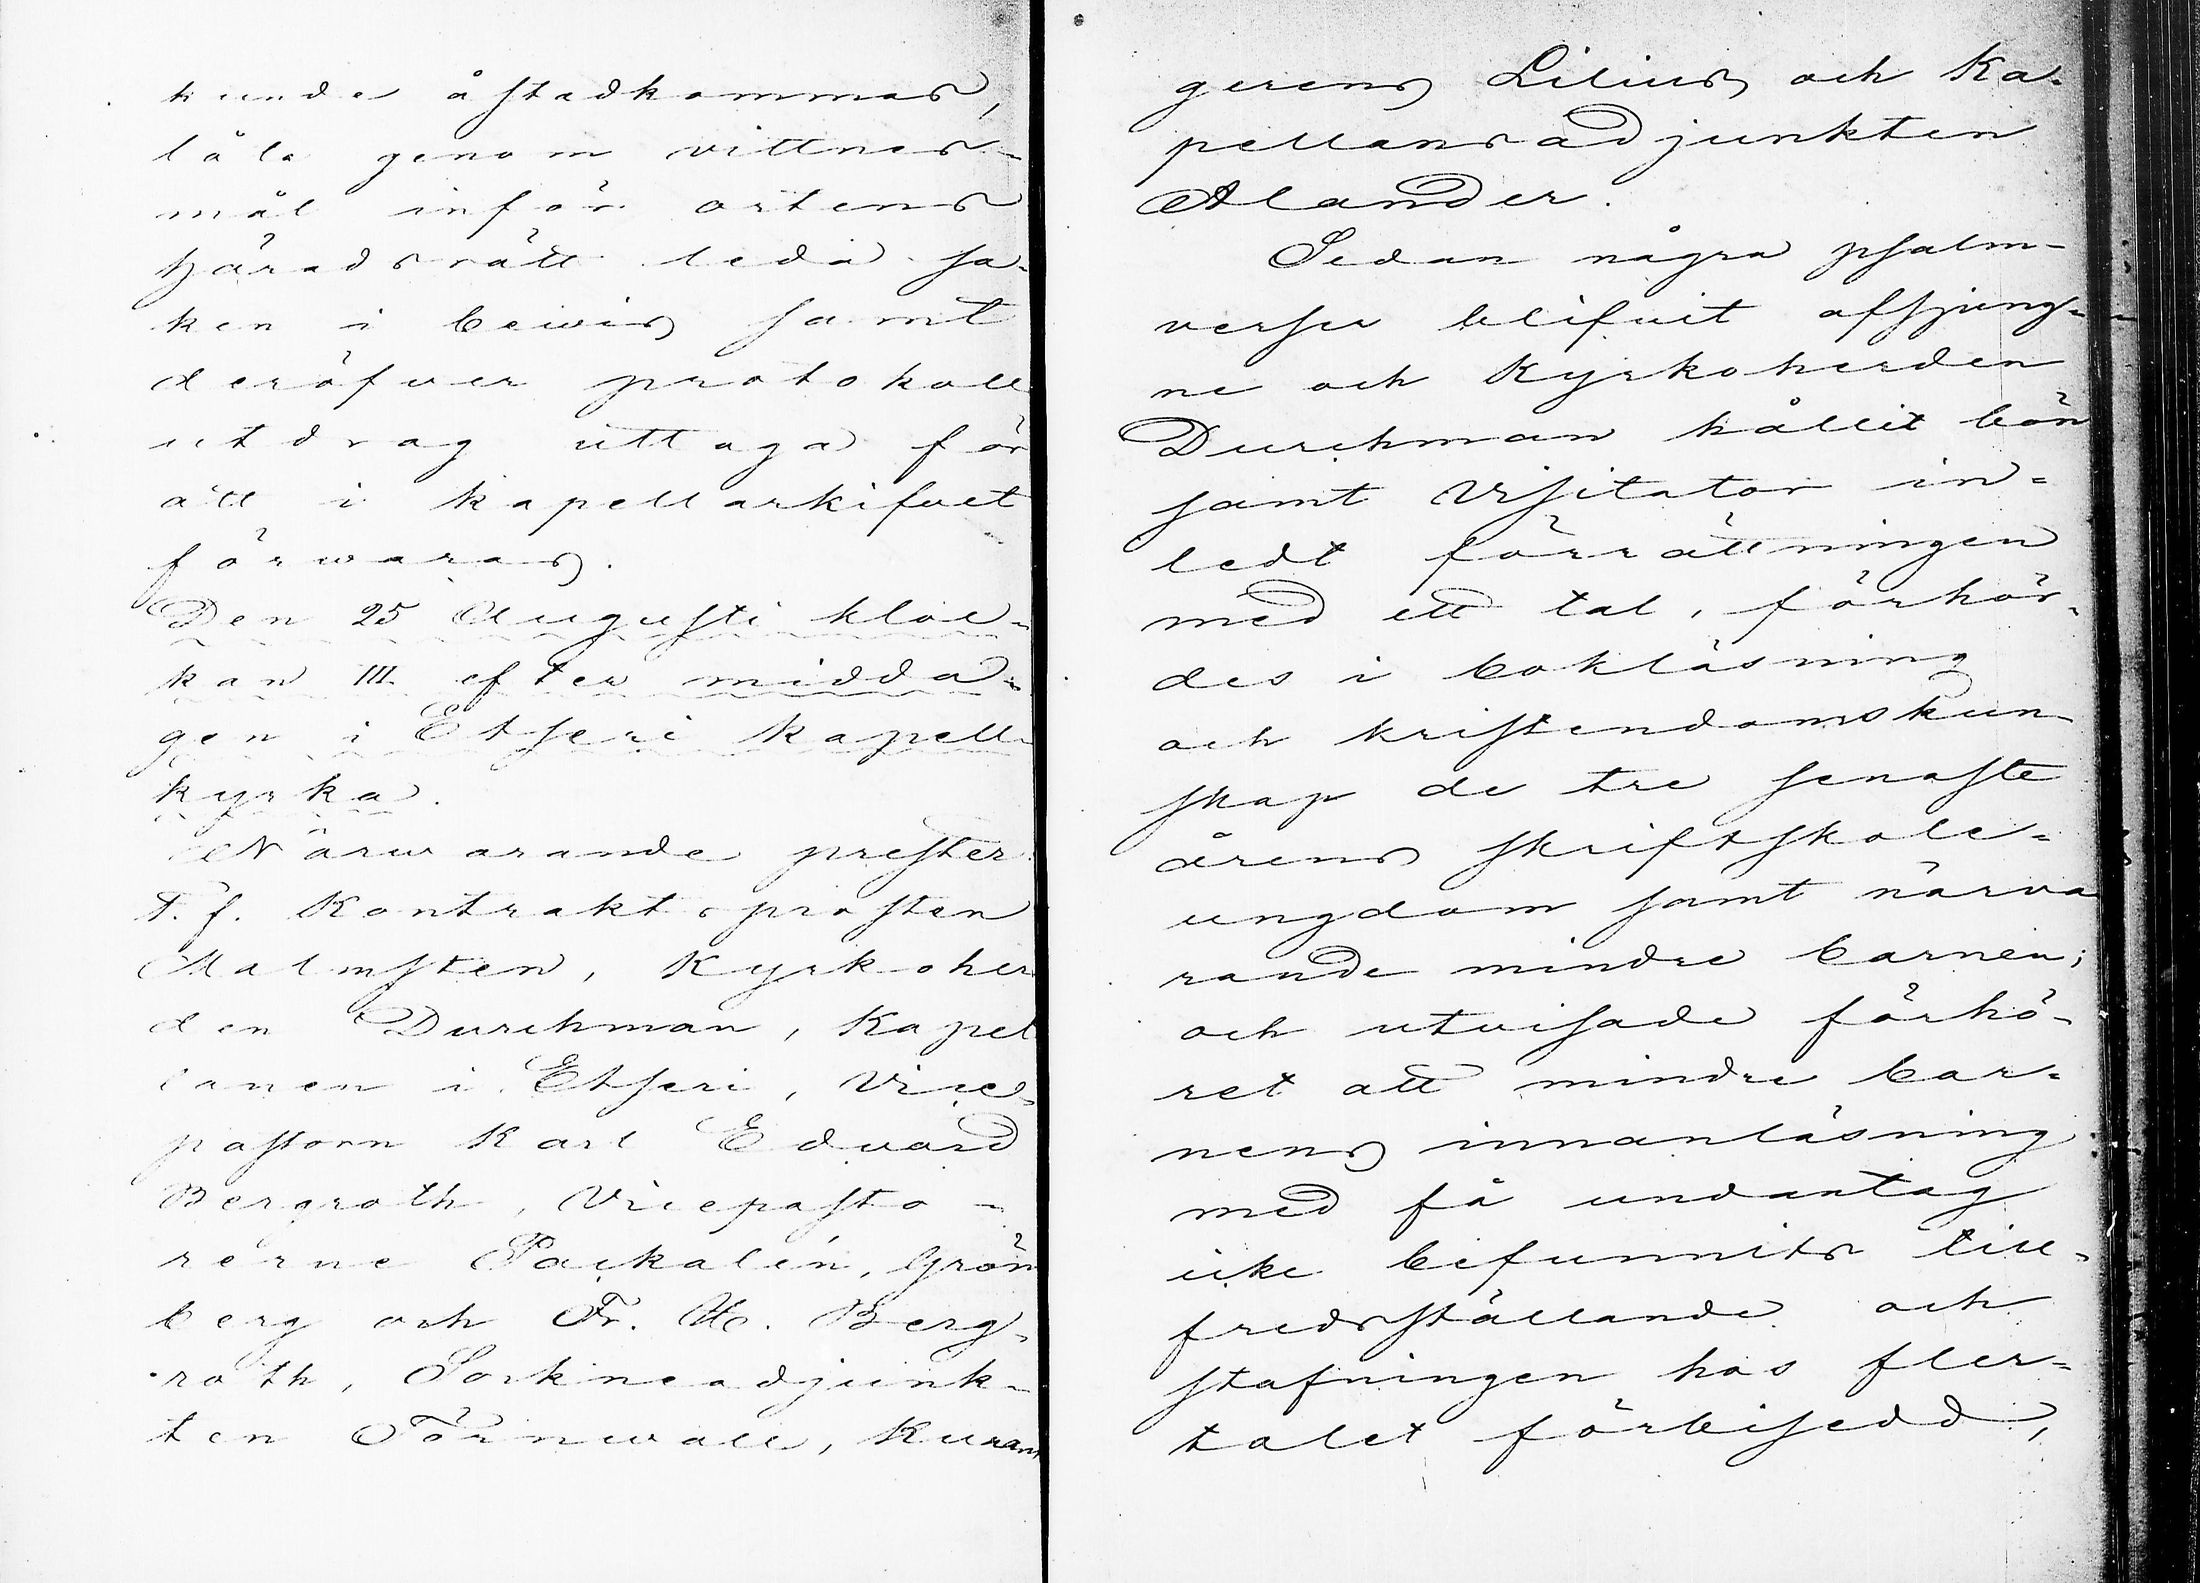 kunde åstadkommas,
låta genom vittnes-
mål inför ortens
häradsrätt leda sa-
ken i bewis samt
deröfver protokoll
utdrag uttaga för
att i kapellarkifvet
förwaras.
Den 25 Augusti kloc-
kan III efter midda-
gen i Etseri kapell
kyrka.
Närwarande prester:
T. f. Kontraktsprosten
Malmsten, Kyrkoher
den Durchman, Kapel
lanen i Etseri, Vice-
pastorn Karl Edvard
Bergroth, Vicepasto-
rerne Packalén, Grön
berg och Fr. H. Berg-
roth, Sockneadjunk-
ten Törnwall, Kuram
gerens Lilius och Ka-
pellansadjunkten
Alander.
Sedan några psalm-
verser blifvit afsjung-
ne och Kyrkoherden
Durchman hållit bön
samt Visitator in-
ledt förrättningen
med ett tal, förhör-
des i bokläsning
och kristendomskun
skap de tre senaste
årens skriftskole-
ungdom samt närva
rande mindre barnen;
och utvisade förhö-
ret att mindre bar-
nens innanläsning
med få undantag
icke befunnits till-
fredsställande och
stafningen hos fler-
talet förbisedd,